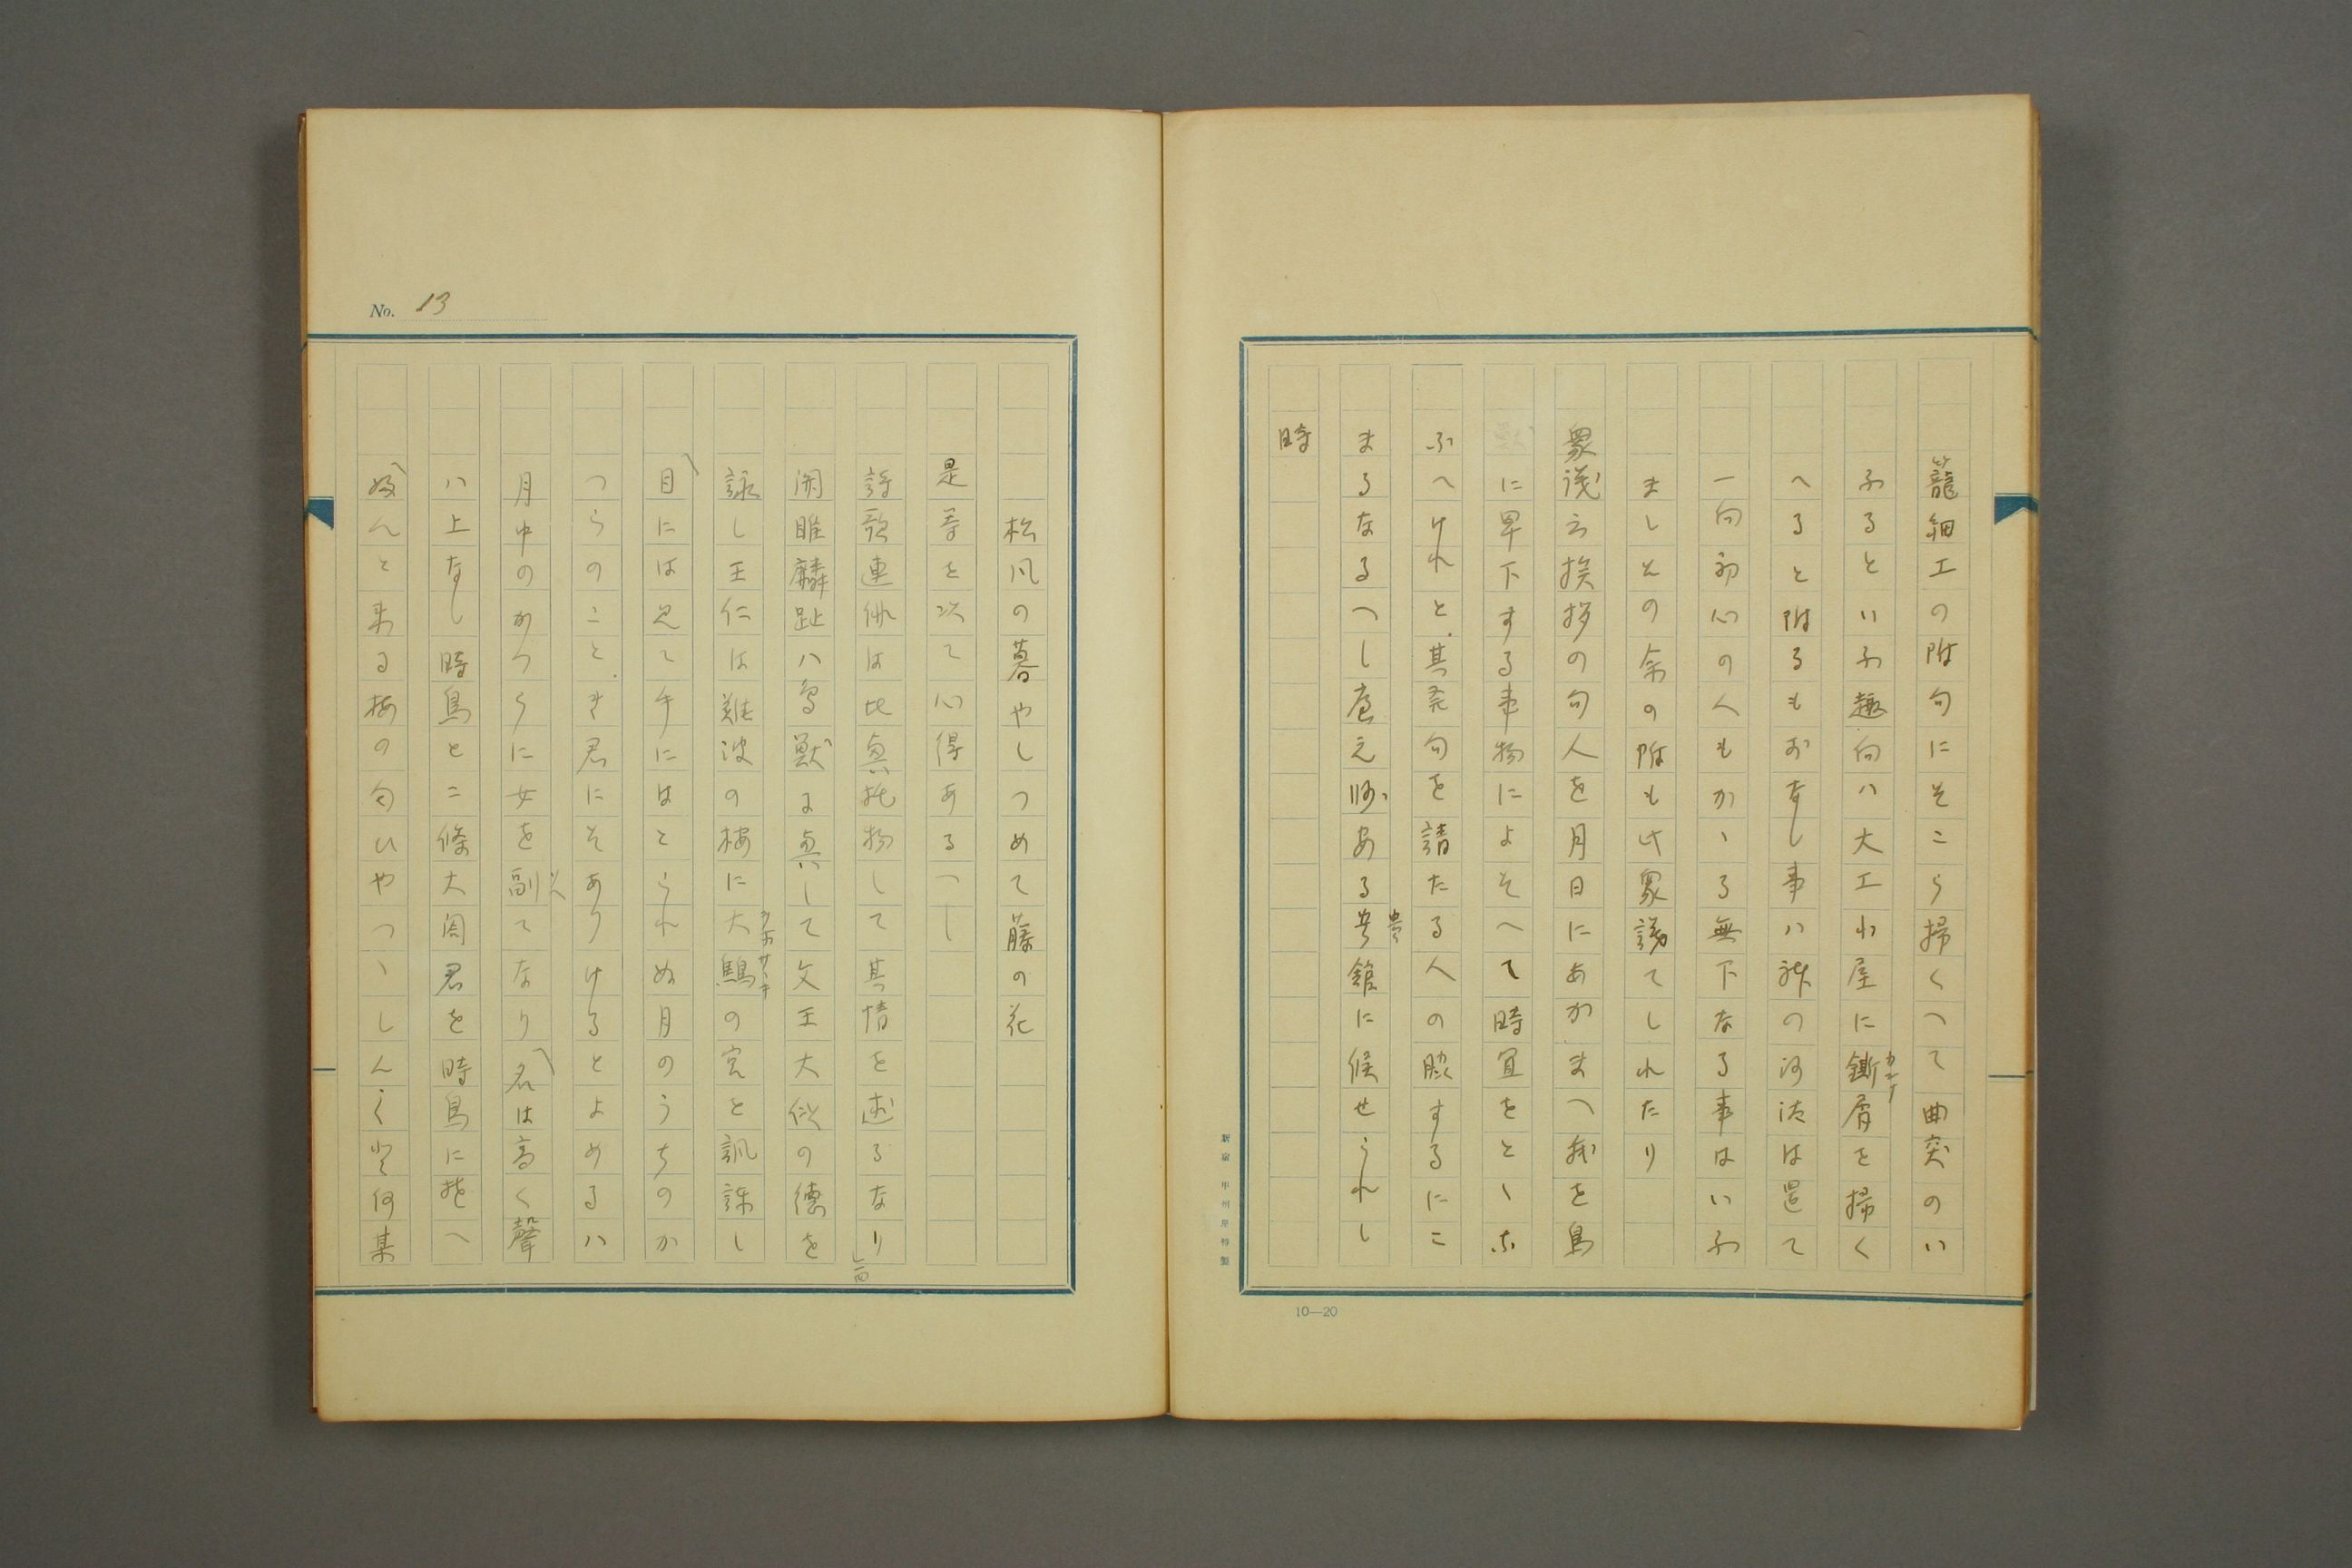 籠細工の附句にそこら掃くへて曲突のい
ふるといふ趣向ハ大工小屋に鏩屑を掃く
カンナ
へると附るもおなし事ハ詠の河法は置て
一向初心の人もかゝる無下なる事はいふ
ましとの余の附も此衆議てしれたり
衆議云挨拶の句人を月日にあかまへ我を鳥
獣に卑下する事物によそへて時宜をとゝの
ふへけれと其発句を請たる人の脇するにこ
まるなるへし庵え 
ある
館に候せられし
時
新宿 甲州屋特製
10—20
No. 13
松風の暮やしつめて藤の花
是等を以て心得あるへし
詩歌連俳は比興托物して其情を述るなり
一面
関睢麟趾ハ鳥獣に興して文王大姒の徳を
詠し王仁は難波の梅に大鷦の宮と諷諌し
サヽキ
目には見て手にはとられぬ月のうちのか
つらのことき君にそありけるとよめるハ
月中のかつらに女を副てなり名は高く聲
ハ上なし時鳥と二條大閤君を時鳥に比へ
んと来る梅の匂ひやつゝしんく 何某